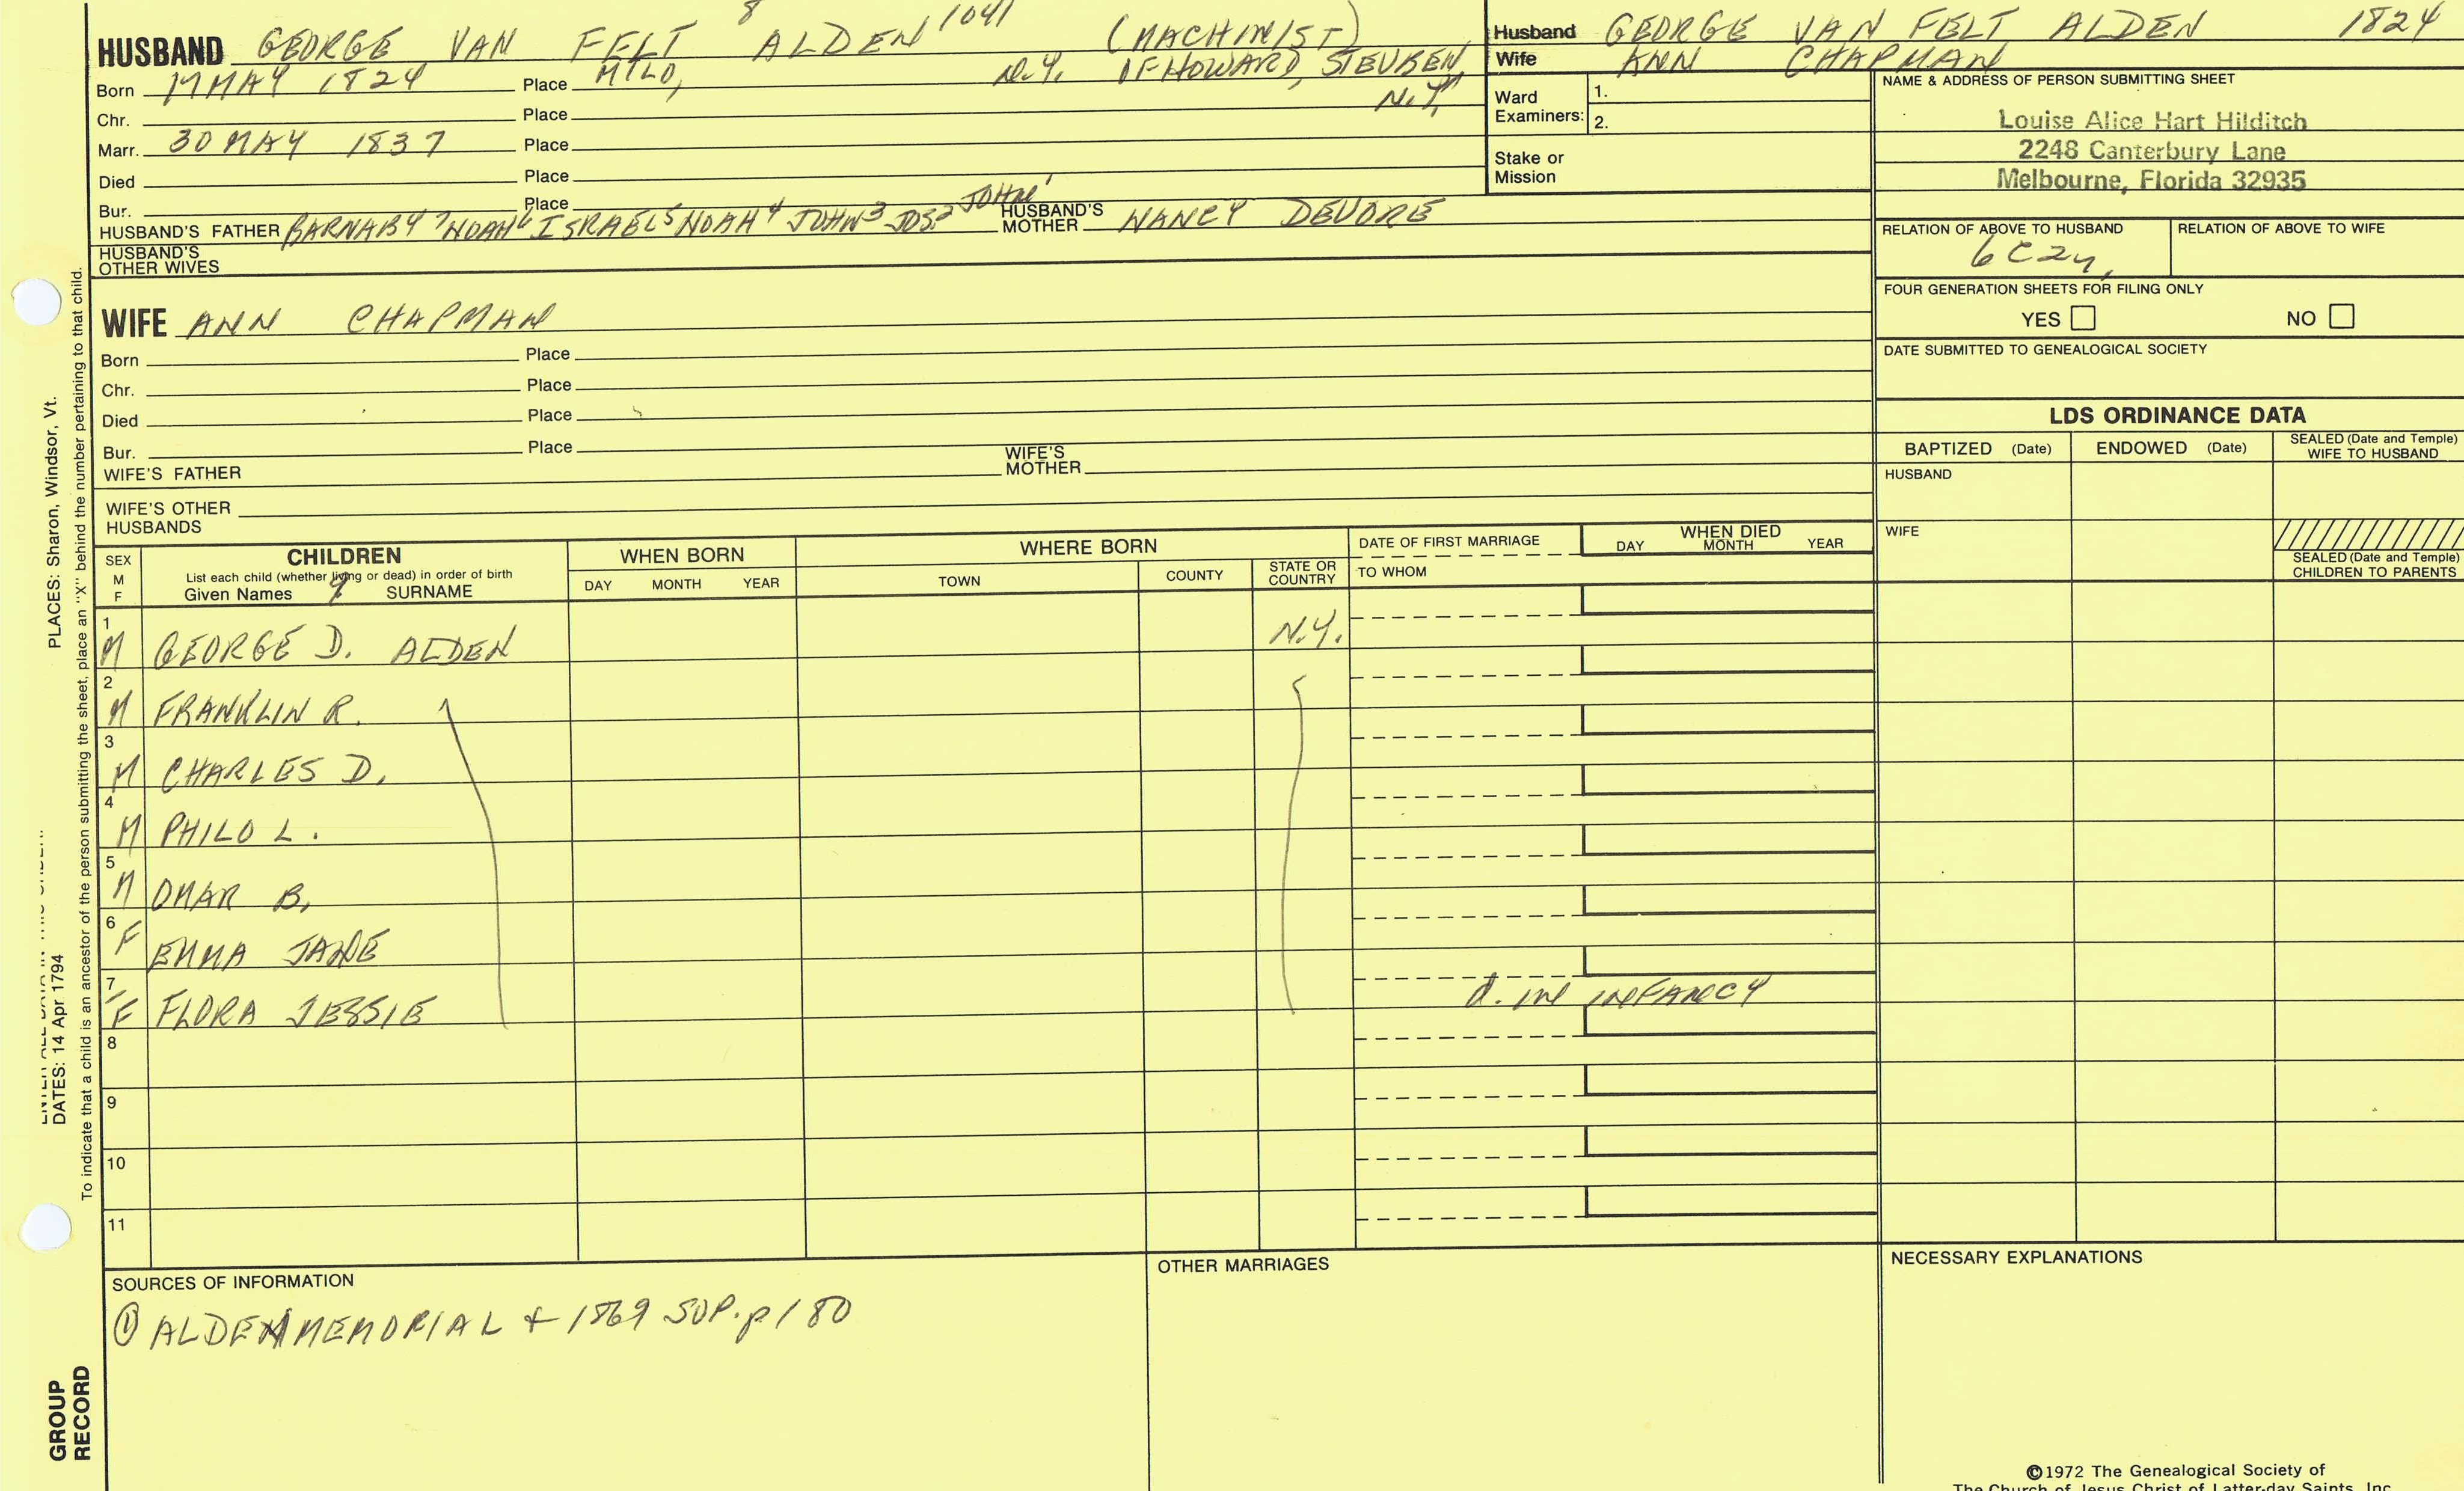 HUSBAND GEORGE VAN FELT 8 ALDEN 1041 (MACHINIST)
Born 17 MAY 1824 Place MILO, N.Y. OF HOWARD, STEUBEN N.Y.
Chr. Place
Marr. 30 MAY 1837 Place
Died Place
Bur. Place
HUSBAND'S FATHER BARNABY 7 NOAH 6 ISRAEL 5 NOAH 4 JOHN 3 JOS 2 JOHN 1 HUSBAND'S MOTHER NANCY DEVORE
HUSBAND'S OTHER WIVES
WIFE ANN CHAPMAN
Born Place
Chr. Place
Died Place
Bur. Place
WIFE'S FATHER WIFE'S MOTHER
WIFE'S OTHER HUSBANDS
Husband GEORGE VAN FELT ALDEN 1824
Wife ANN CHAPMAN
Ward Examiners: 1.
2.
Stake or Mission
NAME & ADDRESS OF PERSON SUBMITTING SHEET
Louise Alice Hart Hilditch
2248 Canterbury Lane
Melbourne, Florida 32935
RELATION OF ABOVE TO HUSBAND RELATION OF ABOVE TO WIFE
6C2r,
FOUR GENERATION SHEETS FOR FILING ONLY
YES NO
DATE SUBMITTED TO GENEALOGICAL SOCIETY
LDS ORDINANCE DATA
BAPTIZED (Date) ENDOWED (Date) SEALED (Date and Temple) WIFE TO HUSBAND
HUSBAND
WIFE
SEALED (Date and Temple) CHILDREN TO PARENTS
SEX M F
CHILDREN
List each child (whether living or dead) in order of birth
Given Names 9 SURNAME
WHEN BORN
DAY MONTH YEAR
WHERE BORN
TOWN COUNTY STATE OR COUNTRY
DATE OF FIRST MARRIAGE
TO WHOM
WHEN DIED
DAY MONTH YEAR
1 M GEORGE D. ALDEN N.Y.
2 M FRANKLIN R.
3 M CHARLES D.
4 M PHILO L.
5 M OMAR B.
6 F EMMA JANE
7 F FLORA JESSIE d. IN INFANCY
8
9
10
11
SOURCES OF INFORMATION
① ALDEN MEMORIAL + 1869 SUP. p 180
OTHER MARRIAGES
NECESSARY EXPLANATIONS
©1972 The Genealogical Society of
The Church of Jesus Christ of Latter-day Saints, Inc.
PLACES: Sharon, Windsor, Vt.
DATES: 14 Apr 1794
To indicate that a child is an ancestor of the person submitting the sheet, place an "X" behind the number pertaining to that child.
GROUP RECORD